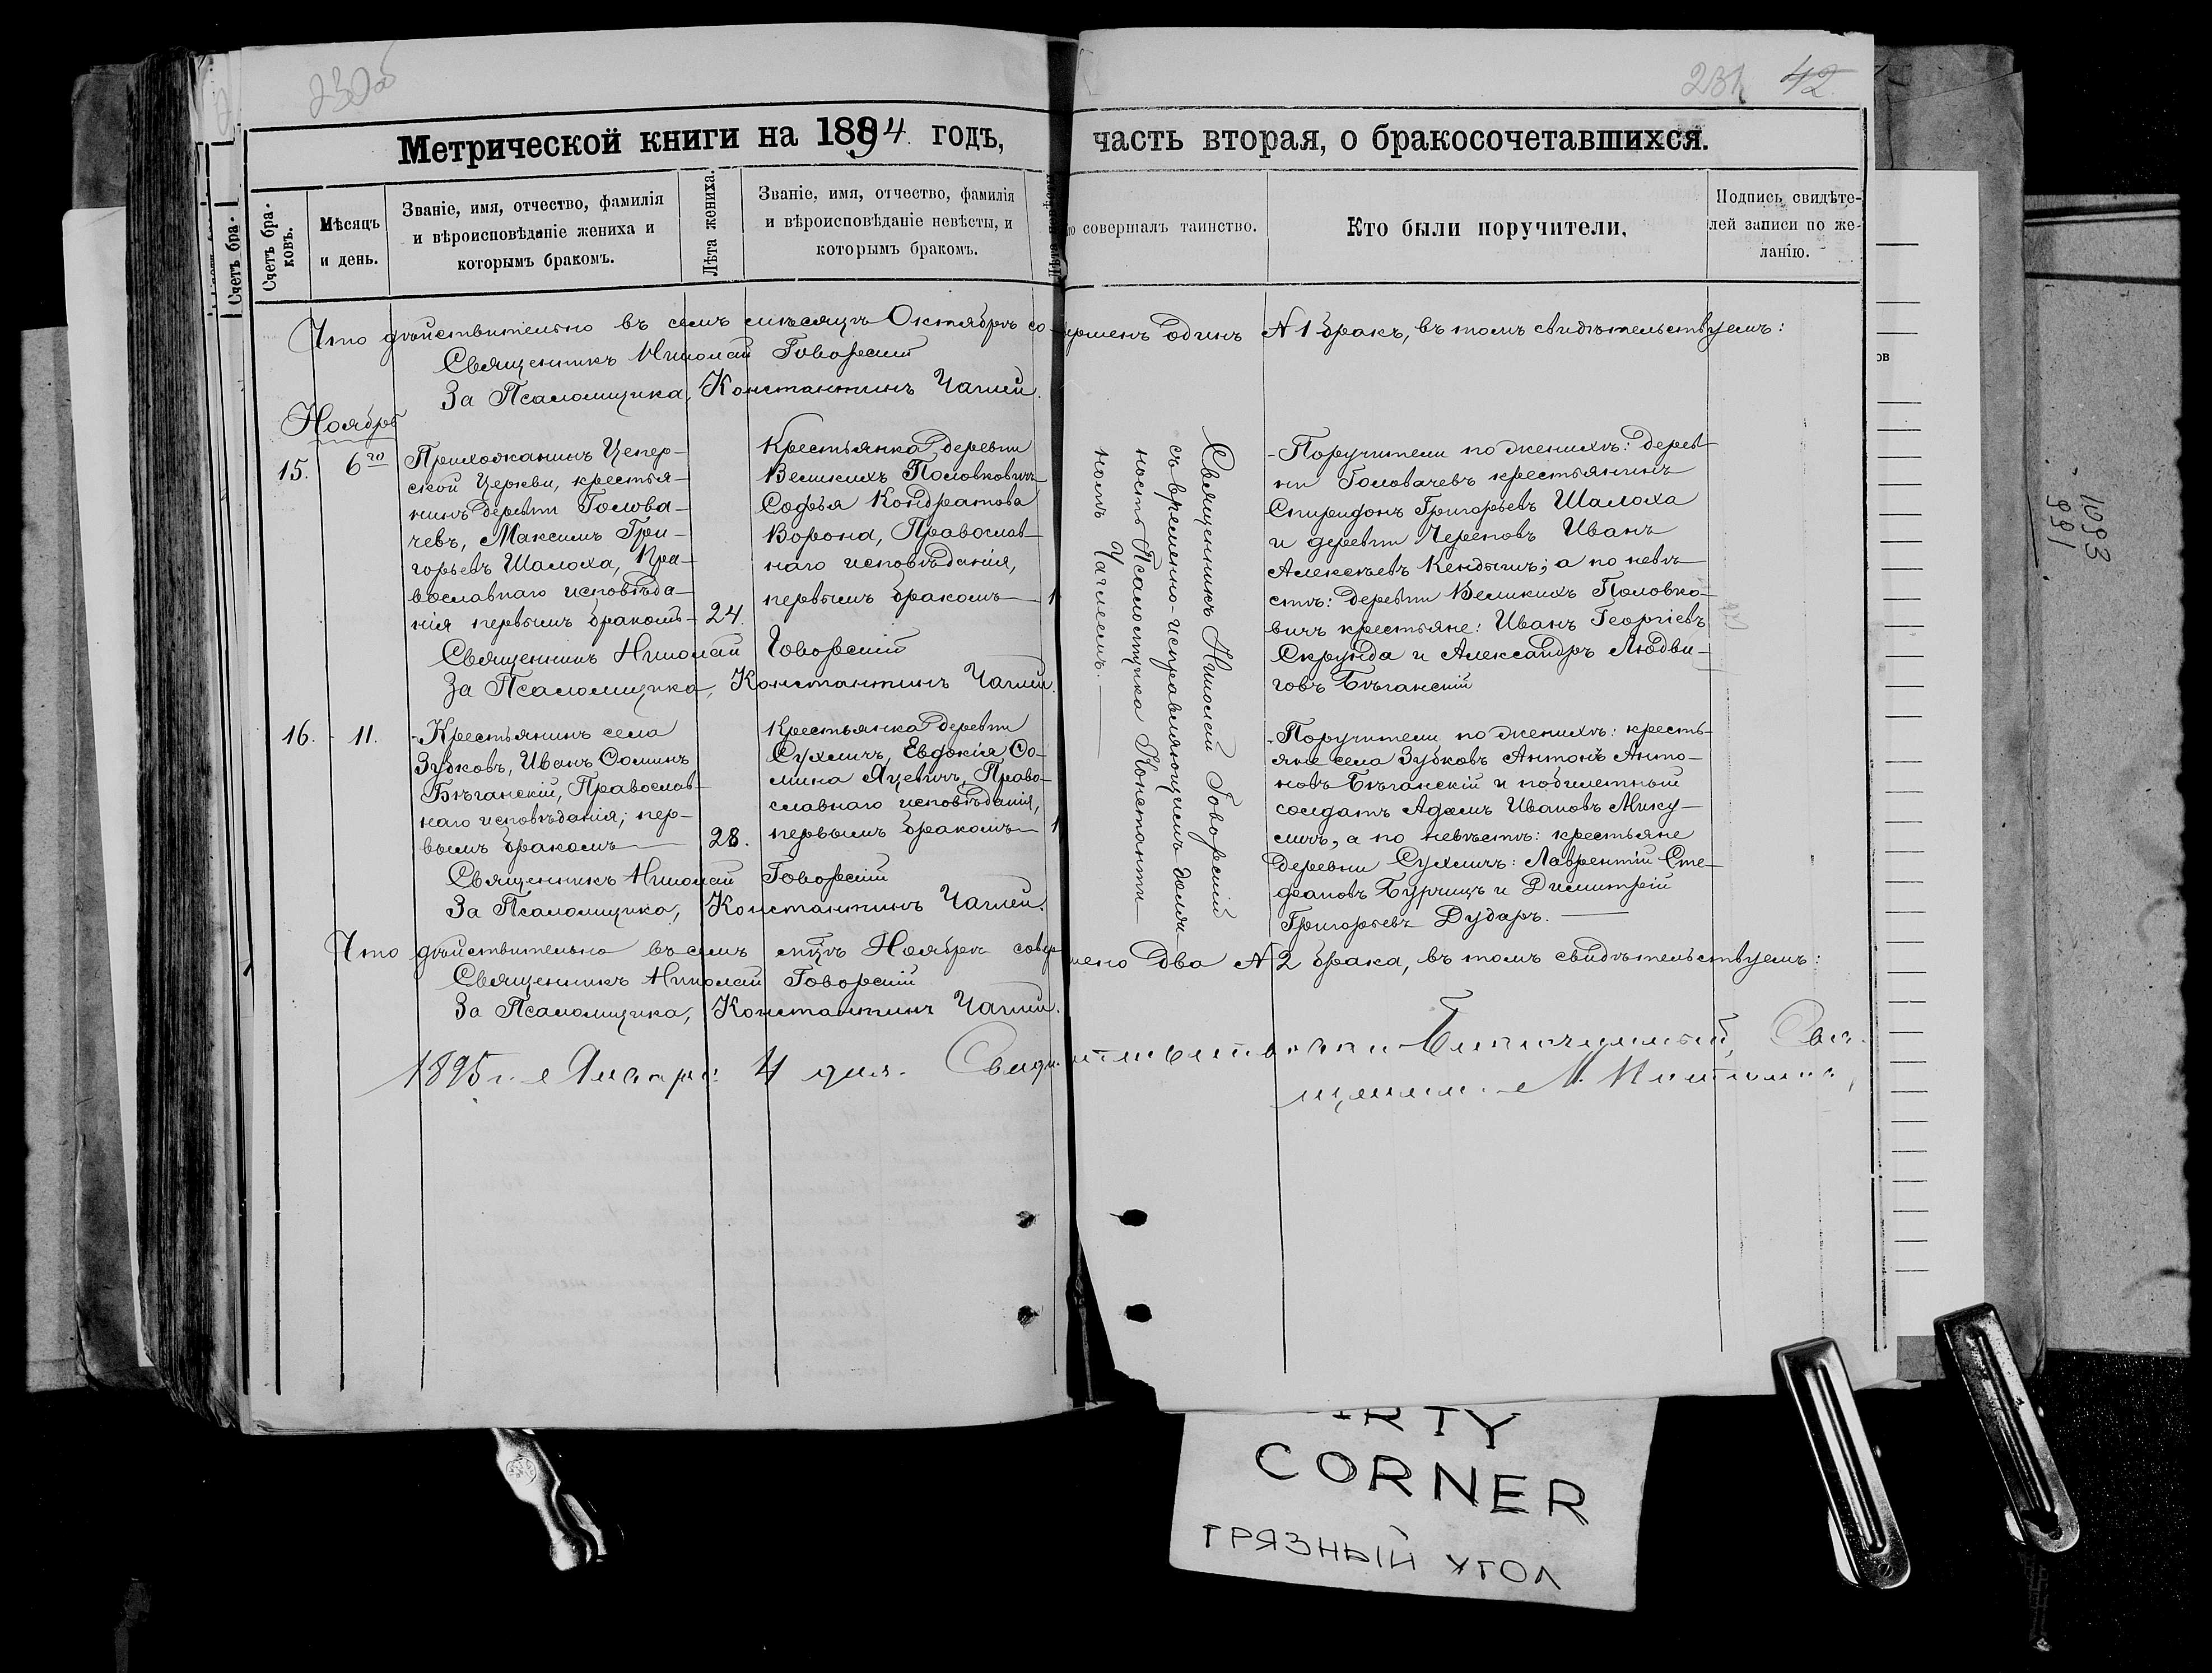 230об
231 42
Метрической книги на 1894 годъ, часть вторая, о бракосочетавшихся.
Счетъ бра-
ковъ.
Мѣсяцъ
и день.
Званіе, имя, отчество, фамилія
и вѣроисповѣданіе жениха и
которымъ бракомъ.
Лѣта жениха.
Званіе, имя, отчество, фамилія
и вѣроисповѣданіе невѣсты, и
которымъ бракомъ.
совершалъ таинство.
Кто были поручители.
Подпись свидѣте-
лей записи по же-
ланію.
Счетъ бра-
Что дѣйствительно въ семъ мѣсяцѣ Октябрѣ совершенъ одинъ №1 бракъ, въ томъ свидѣтельствуемъ:
Священникъ Николай Говорскій
За Псаломщика, Константинъ Чаглей.
Ноябрь
15. 6го
Прихожанинъ Цепер-
ской Церкви, крестья-
нинъ деревни Голова-
чевъ, Максимъ Гри-
горьевъ Шалоха, Пра-
вославнаго исповѣда-
нія первымъ бракомъ
24.
Крестьянка деревни
Великихъ Половковичъ
Софья Кондратова
Ворона, Православ-
наго исповѣданія,
первымъ бракомъ
Священникъ Николай Говорскій
съ временно-исправляющимъ долж-
ность Псаломщика Константи-
номъ Чаглеемъ.
Поручители по женихѣ: дерев-
ни Головачевъ крестьянинъ
Спиридонъ Григорьевъ Шалоха
и деревни Череповъ Иванъ
Алексѣевъ Кендышъ; а по невѣ-
стѣ: деревни Великихъ Половко-
вичъ крестьяне: Иванъ Георгіевъ
Скрунда и Александръ Людви-
говъ Бѣганскій
Священникъ Николай Говорскій
За Псаломщика, Константинъ Чаглей.
16. 11.
Крестьянинъ села
Зубковъ, Иванъ Соминъ
Бѣганскій, Православ-
наго исповѣданія; пер-
вымъ бракомъ
28.
Крестьянка деревни
Сухличъ, Евдокія Со-
мина Яцевичъ, Право-
славнаго исповѣданія,
первымъ бракомъ
Поручители по женихѣ: кресть-
яне села Зубковъ Антонъ Анто-
новъ Бѣганскій и побилетный
солдатъ Адамъ Ивановъ Мику-
личъ, а по невѣстѣ: крестьяне
деревни Сухличъ: Лаврентій Сте-
фановъ Бурчицъ и Димитрій
Григорьевъ Дударъ.
Священникъ Николай Говорскій
За Псаломщика, Константинъ Чаглей.
Что дѣйствительно въ семъ мцѣ Ноябрѣ совершено два №2 брака, въ томъ свидѣтельствуемъ:
Священникъ Николай Говорскій
За Псаломщика, Константинъ Чаглей.
1895 г. Января 4 дня. Свидѣтельствовалъ Благочинный, Свя-
щенникъ М.
1093
991
CORNER
ГРЯЗНЫЙ УГОЛ